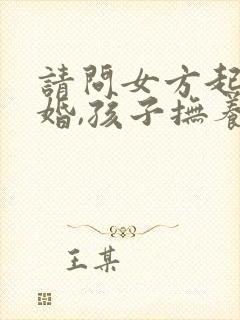 請問女方起
婚,孩子撫養
王某